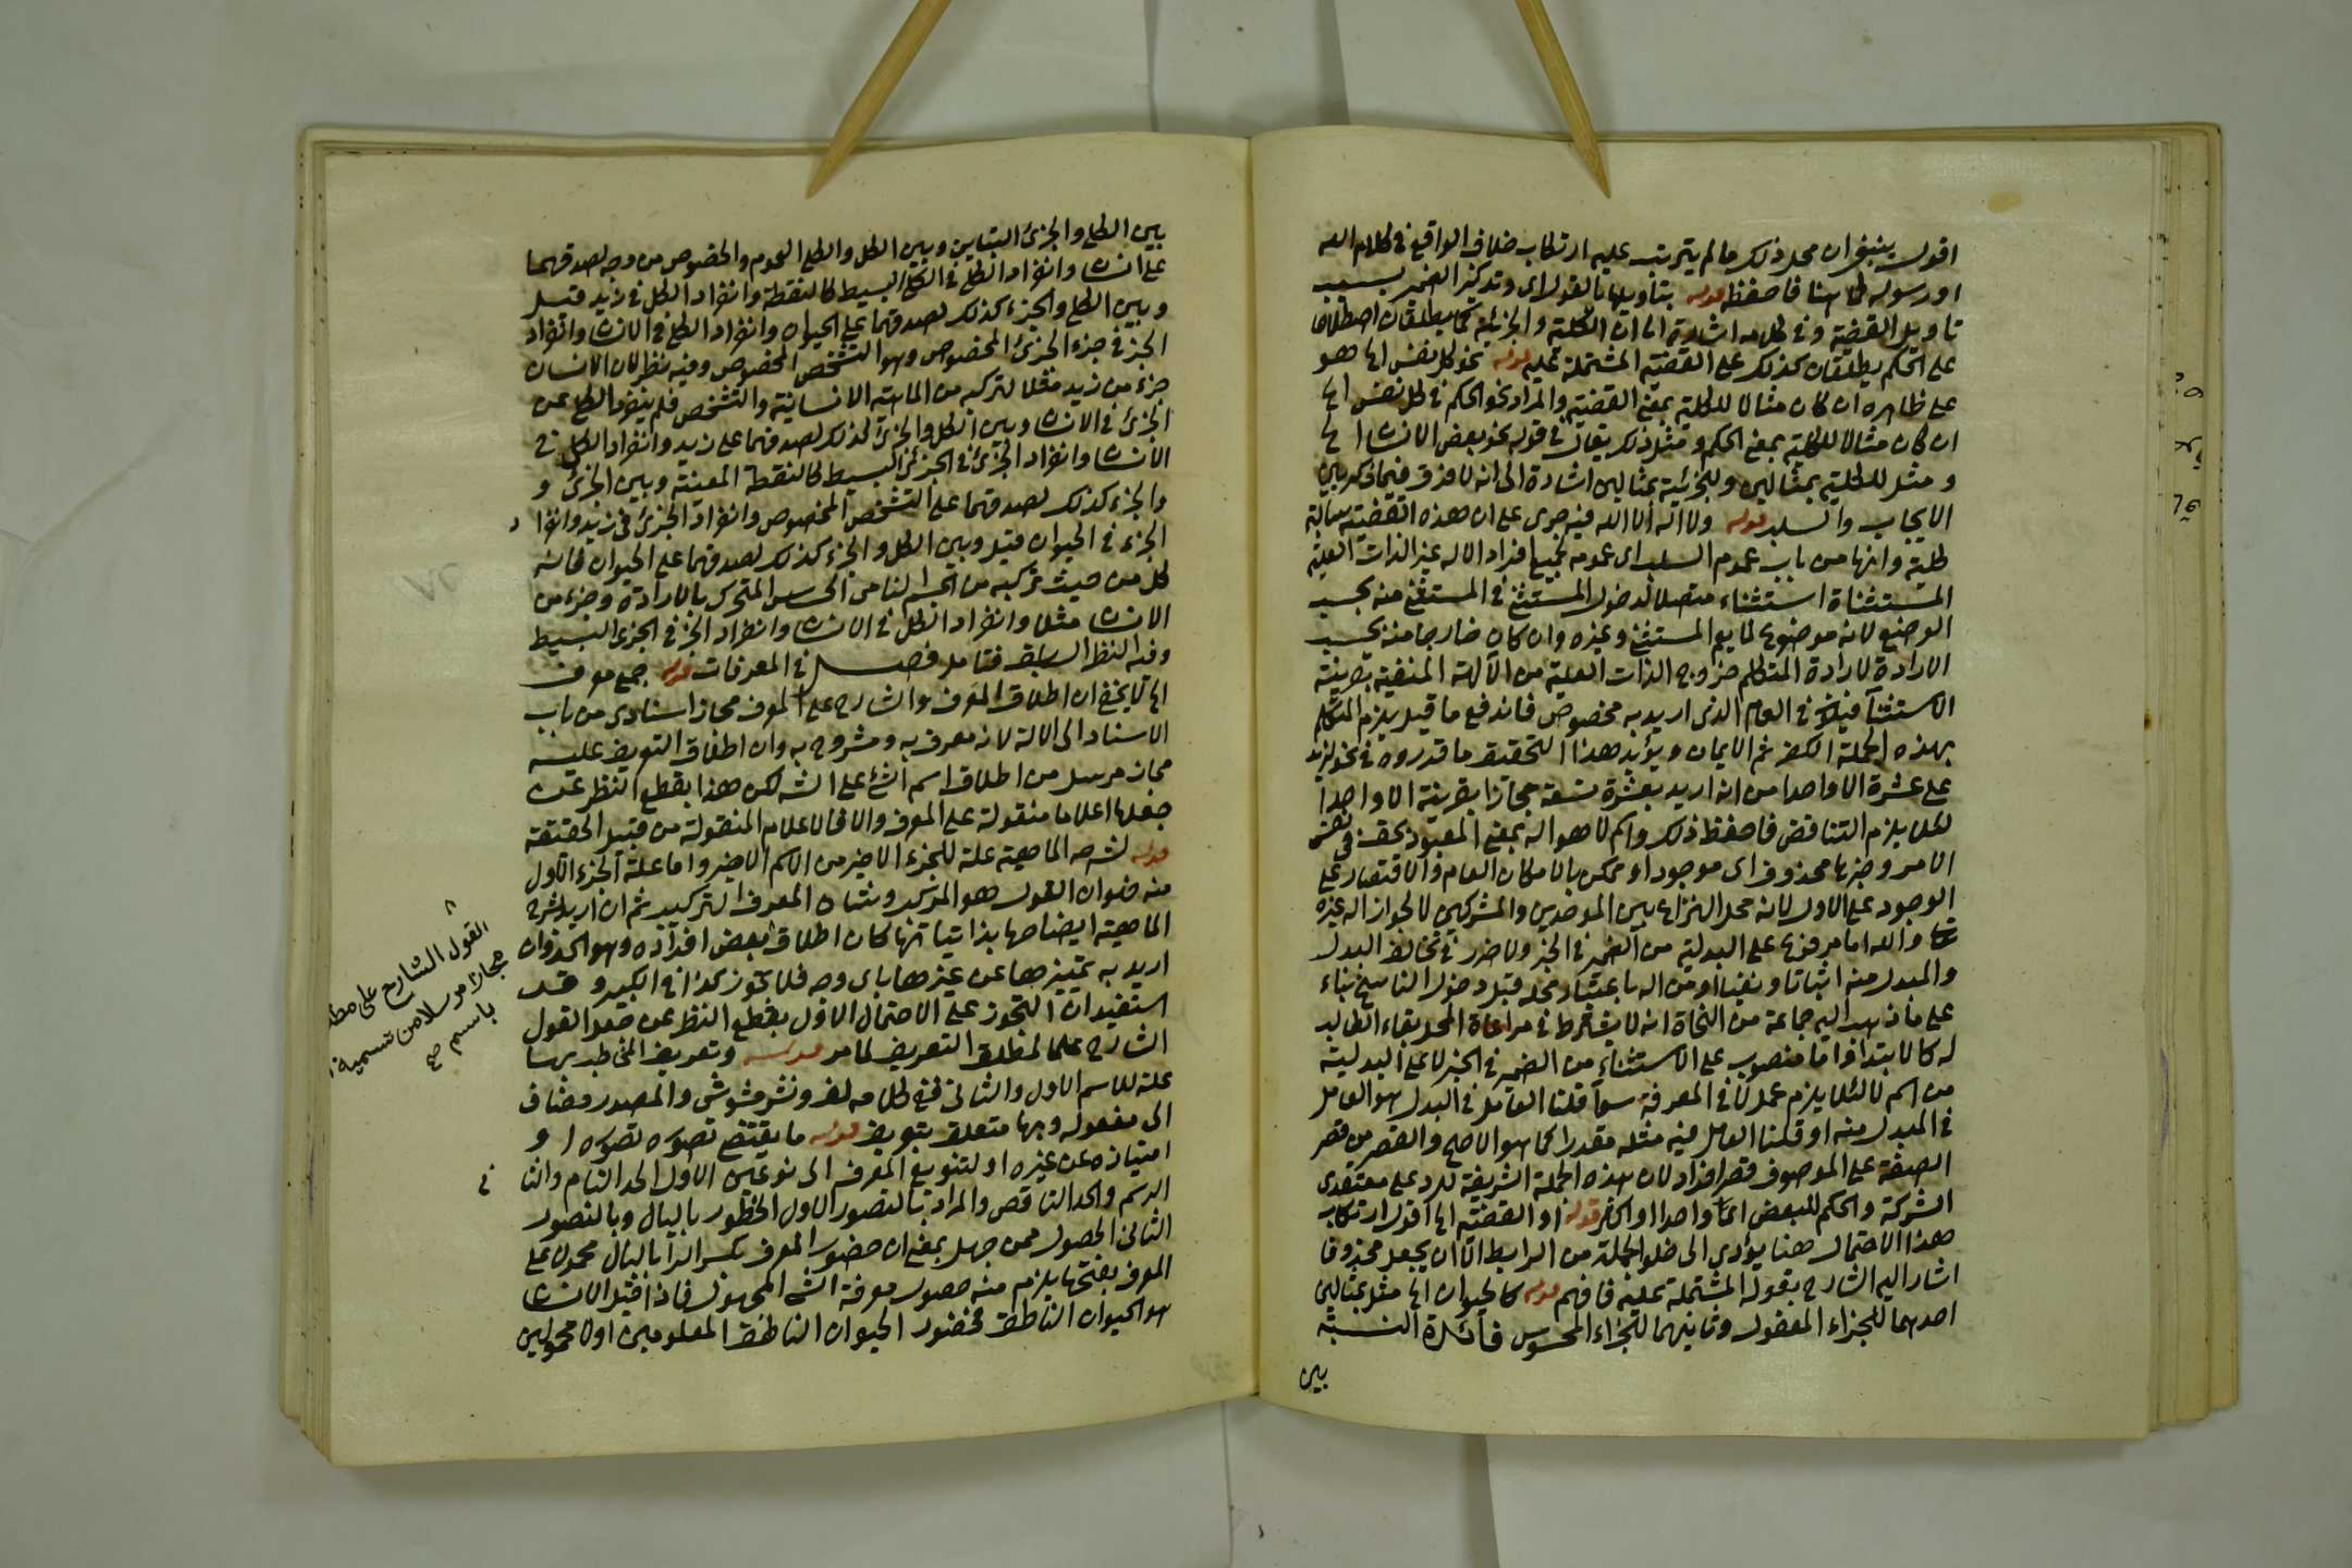 اقول ينبغي ان محل ذلك ما لم يترتب عليه ارتكاب خلاف الواقع في كلام الله
او رسوله كما هنا فاحفظ قوله بتأويلها بالقول اي وتذكير الضمير بسبب
تاويل القضية وفي كلامه اشارة الى ان الكلية والجزئية كما يطلقان اصطلاحا
على الحكم يطلقان كذلك على القضية المشتملة عليه قوله نحو كل نفس الخ هو
على ظاهره ان كان مثالا للكلية بمعنى القضية والمراد نحو الحكم في كل نفس الخ
ان كان مثالا للكلية بمعنى الحكم ومثل ذلك يقال في قوله نحو بعض الانسان الخ
ومثل للكلية بمثالين وللجزئية بمثالين اشارة الى انه لا فرق فيما ذكر بين
الايجاب والسلب قوله ولا اله الا الله فيه جرى على ان هذه القضية سالبة
كلية وانها من باب عموم السلب اي عمومه لجميع افراد الاله غير الذات العلية
المستثناة استثناء متصلا لدخول المستثنى في المستثنى منه بحسب
الوضع لانه موضوع لما يعم المستثنى وغيره وان كان خارجا منه بحسب
الارادة لارادة المتكلم خروج الذات العلية من الآلهة المنفية بقرينة
الاستثناء في العام الذي اريد به مخصوص فاندفع ما قيل يلزم المتكلم
بهذه الجملة الكفر ثم الايمان ويؤيد هذا التحقيق ما قدروه في نحو لزيد
على عشرة الا واحدا من انه اريد بعشرة تسعة مجازا بقرينة الا واحدا
لئلا يلزم التناقض فاحفظ ذلك واسم لا هو اله بمعنى المعبود بحق في نفس
الامر وخبرها محذوف اي موجود او ممكن بالامكان العام والاقتصار على
الوجود على الاول لانه محل النزاع بين الموحدين والمشركين لا لجواز اله غيره
والله اما مرفوع على البدلية من الضمير في الخبر ولا ضرر في تخالف البدل
والمبدل منه اثباتا ونفيا او من اله باعتبار محله قبل دخول الناسخ بناء
على ما ذهب اليه جماعة من النحاة انه لا يشترط في مراعاة المحل بقاء الطالب
له كالابتدا واما منصوب على الاستثناء من الضمير في الخبر لا على البدلية
من اسم لا لئلا يلزم عمل لا في المعرفة سوا قلنا العامل في البدل هو العامل
في المبدل منه او قلنا العامل فيه مثله مقدرا كما هو الاصح والقصر من قصر
الصفة على الموصوف قصر افراد لان هذه الجملة الشريفة للرد على معتقدي
الشركة والحكم للبعض واحدا او اكثر قوله او القضية الخ اقول ارتكاب
هذا الاحتمال هنا يؤدي الى خلو الجملة من الرابط الا ان يجعل محذوفا
اشار اليه الشارح بقوله المشتملة عليه فافهم قوله كالحيوان الخ مثل بمثالين
احدهما للجزاء المعقول وثانيهما للجزاء المحسوس فائدة النسبة
بين
بين الكلي والجزئي التباين وبين الكل والكلي العموم والخصوص من وجه لصدقهما
على انسان وانفراد الكلي في الكلي البسيط كالنقطة وانفراد الكل في زيد قيل
وبين الكلي والجزء كذلك لصدقهما على الحيوان وانفراد الكلي في الانسان وانفراد
الجزء في جزء الجزئي المخصوص وهو التشخص المخصوص وفيه نظر لان الانسان
جزء من زيد مثلا لتركبه من الماهية الانسانية والتشخص فلم ينفرد الكلي عن
الجزئي في الانسان وبين الكل والجزئي كذلك لصدقهما على زيد وانفراد الكل في
الانسان وانفراد الجزئي في الجزئي البسيط كالنقطة المعينة وبين الجزئي و
والجزء كذلك لصدقهما على التشخص المخصوص وانفراد الجزئي في زيد وانفرا د
الجزء في الحيوان قيل وبين الكل والجزء كذلك لصدقهما على الحيوان فانه
كل من حيث تركبه من الجسم النامي الحساس المتحرك بالارادة وجزء من
الانسان مثلا وانفراد الكل في الانسان وانفراد الجزء في الجزئي البسيط
وفيه النظر السابق فتامل فصل في المعرفات قوله جمع معرف
الخ لا يخفى ان اطلاق المعرف والشارح على المعرف مجاز اسنادي من باب
الاسناد الى الالة لانه معرف به ومشروح به وان اطلاق التعريف عليه
مجاز مرسل من اطلاق اسم الشئ على الشئ لكن هذا بقطع النظر عن
جعلها اعلاما منقولة على المعرف والا فالاعلام المنقولة من قبيل الحقيقة
قوله لشرحه الماهية علة للجزء الاخير من الاسم الاخير واما علة الجزء الاول
منه فهو ان القول هو المركب وشان المعرف التركيب ثم ان اريد بشرح
الماهية ايضاحها بذاتياتها كان اطلاق بعض افراده وهو الحد وان
اريد به تمييزها عن غيرها باي وجه فلا تجوز كذا في الكبير وقد
استفيد ان التجوز على الاحتمال الاول بقطع النظر عن جعل القول
الشارح علما لمطلق التعريف لما مر قوله وتعريف المخاطب بها
علة للاسم الاول والثاني ففي كلامه لف ونشر مشوش والمصدر مضاف
الى مفعوله وبها متعلق بتعريف قوله ما يقتضي تصوره تصوره ا و
امتيازه عن غيره او لتنويع المعرف الى نوعين الاول الحد التام والثا ني
الرسم والحد الناقص والمراد بالتصور الاول الخطور بالبال وبالتصور
الثاني الحصول ممن جهل بمعنى ان حضور المعرف بكسر الرا بالبال محمولا على
المعرف بفتحها يلزم منه حصول معرفة الشئ المجهول فاذا قيل الانسان
هو الحيوان الناطق فحضور الحيوان الناطق المعلومين اولا محمولين
القول الشارح على مط
مجازا مرسلا من تسمية
باسم صح